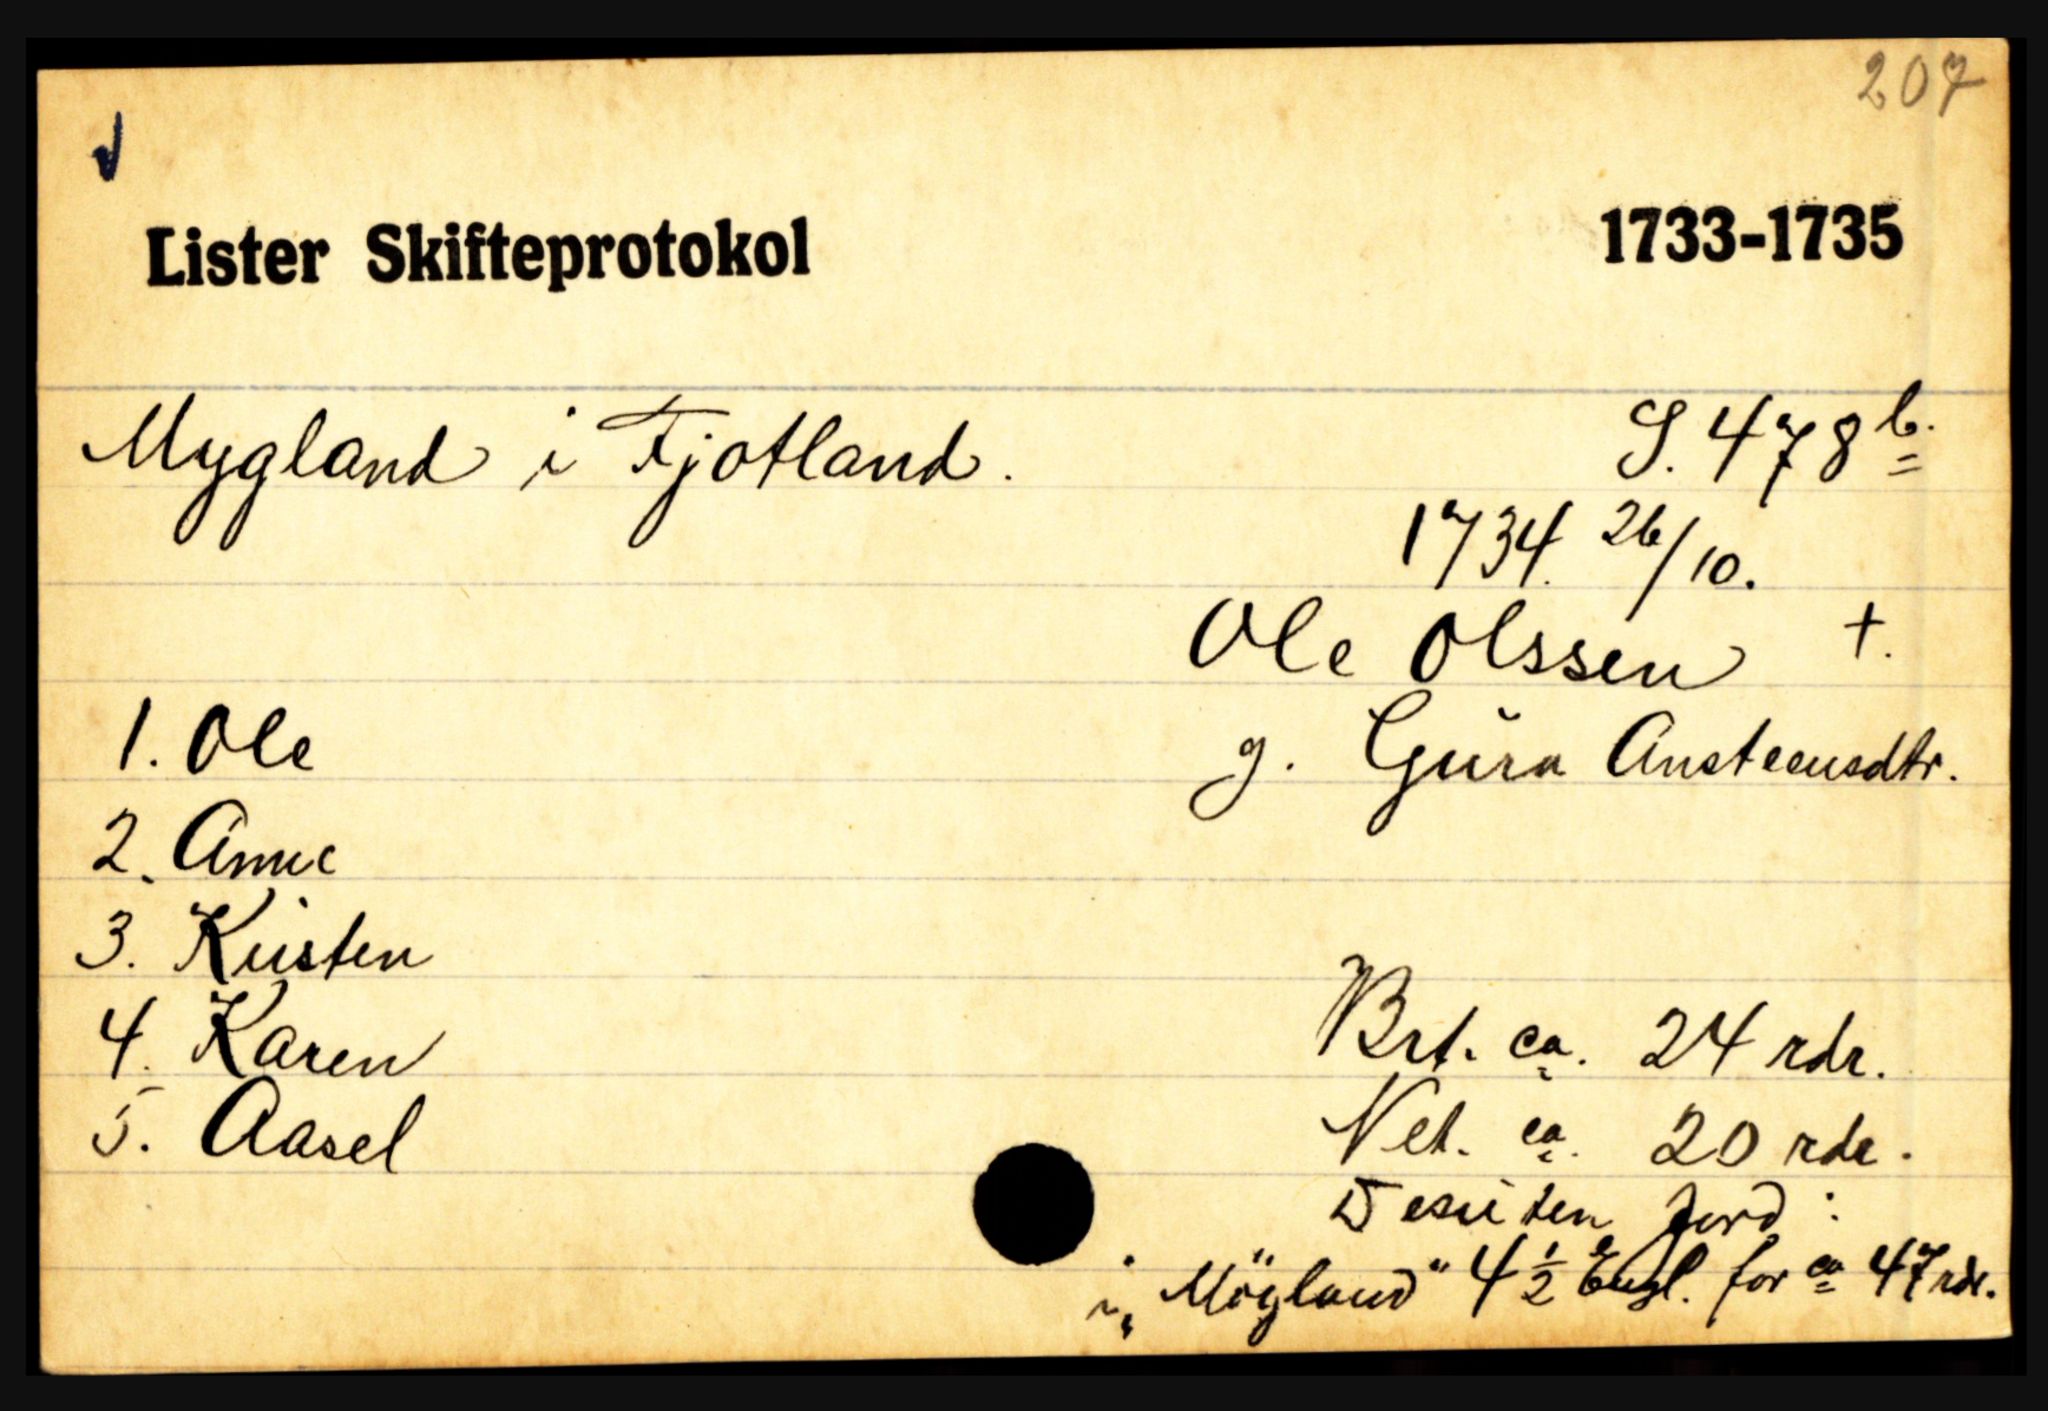 207
Lister Skifteprotokol 1733-1735
Mygland i Fjotland. S. 478 b.
1734. 26/10.
Ole Olssen +.
1. Ole g. Gŭra Ansteensdtr.
2. Anne
3. Kirsten
4. Karen Brt. ca. 24 rdr.
5. Aasel Net. ca. 20 rdr.
Desuten jord:
i „Mögland" 4 1/2 Engl. for ca 47 rdr.